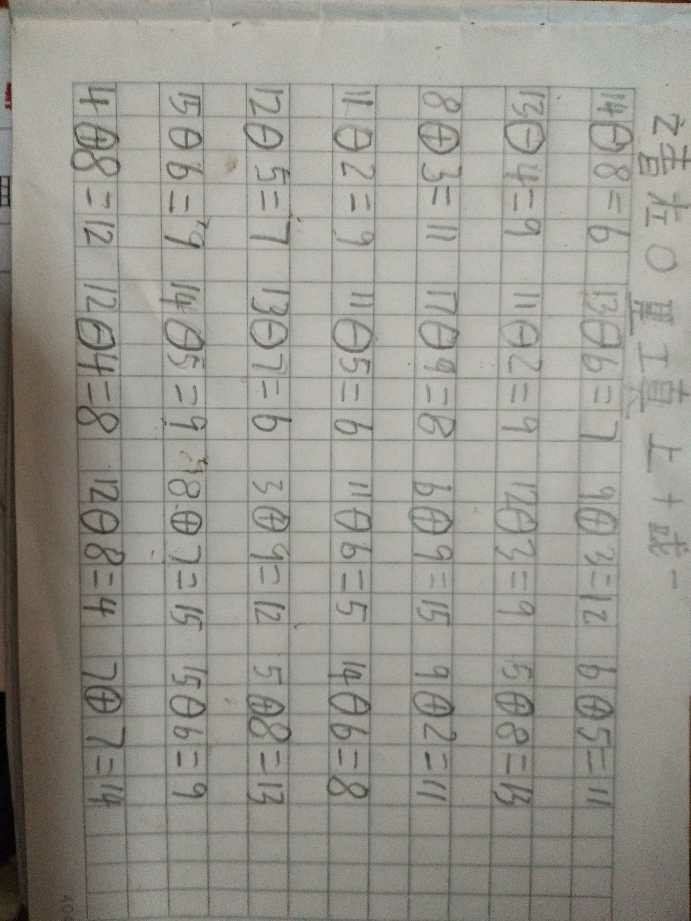 请在○里填上+或-
14⊖8=6 13⊖6=7 9⊕3=12 6⊕5=11
13⊖4=9 11⊖2=9 12⊖3=9 5⊕8=13
8⊕3=11 17⊖9=8 6⊕9=15 9⊕2=11
11⊖2=9 11⊖5=6 11⊖6=5 14⊖6=8
12⊖5=7 13⊖7=6 3⊕9=12 5⊕8=13
15⊖6=9 14⊖5=9 8⊕7=15 15⊖6=9
4⊕8=12 12⊖4=8 12⊖8=4 7⊕7=14